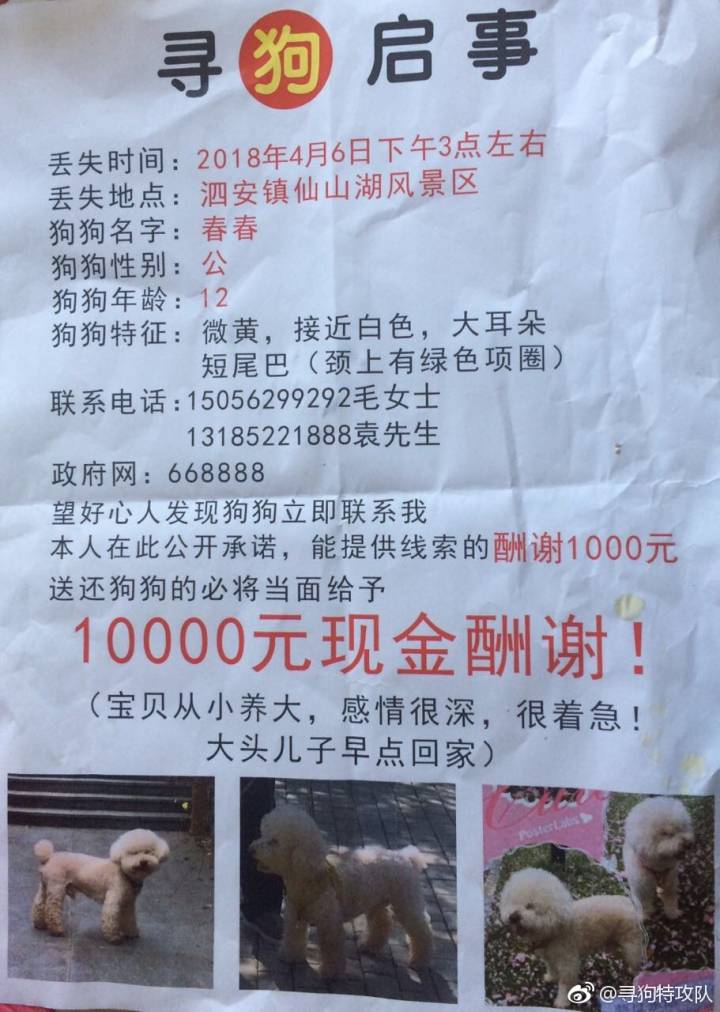 寻狗启事
丢失时间：2018年4月6日下午3点左右
丢失地点：泗安镇仙山湖风景区
狗狗名字：春春
狗狗性别：公
狗狗年龄：12
狗狗特征：微黄，接近白色，大耳朵
短尾巴（颈上有绿色项圈）
联系电话：15056299292毛女士
13185221888袁先生
政府网：668888
望好心人发现狗狗立即联系我
本人在此公开承诺，能提供线索的酬谢1000元
送还狗狗的必将当面给予
10000元现金酬谢！
（宝贝从小养大，感情很深，很着急！
大头儿子早点回家）
PosterLabs
@寻狗特攻队